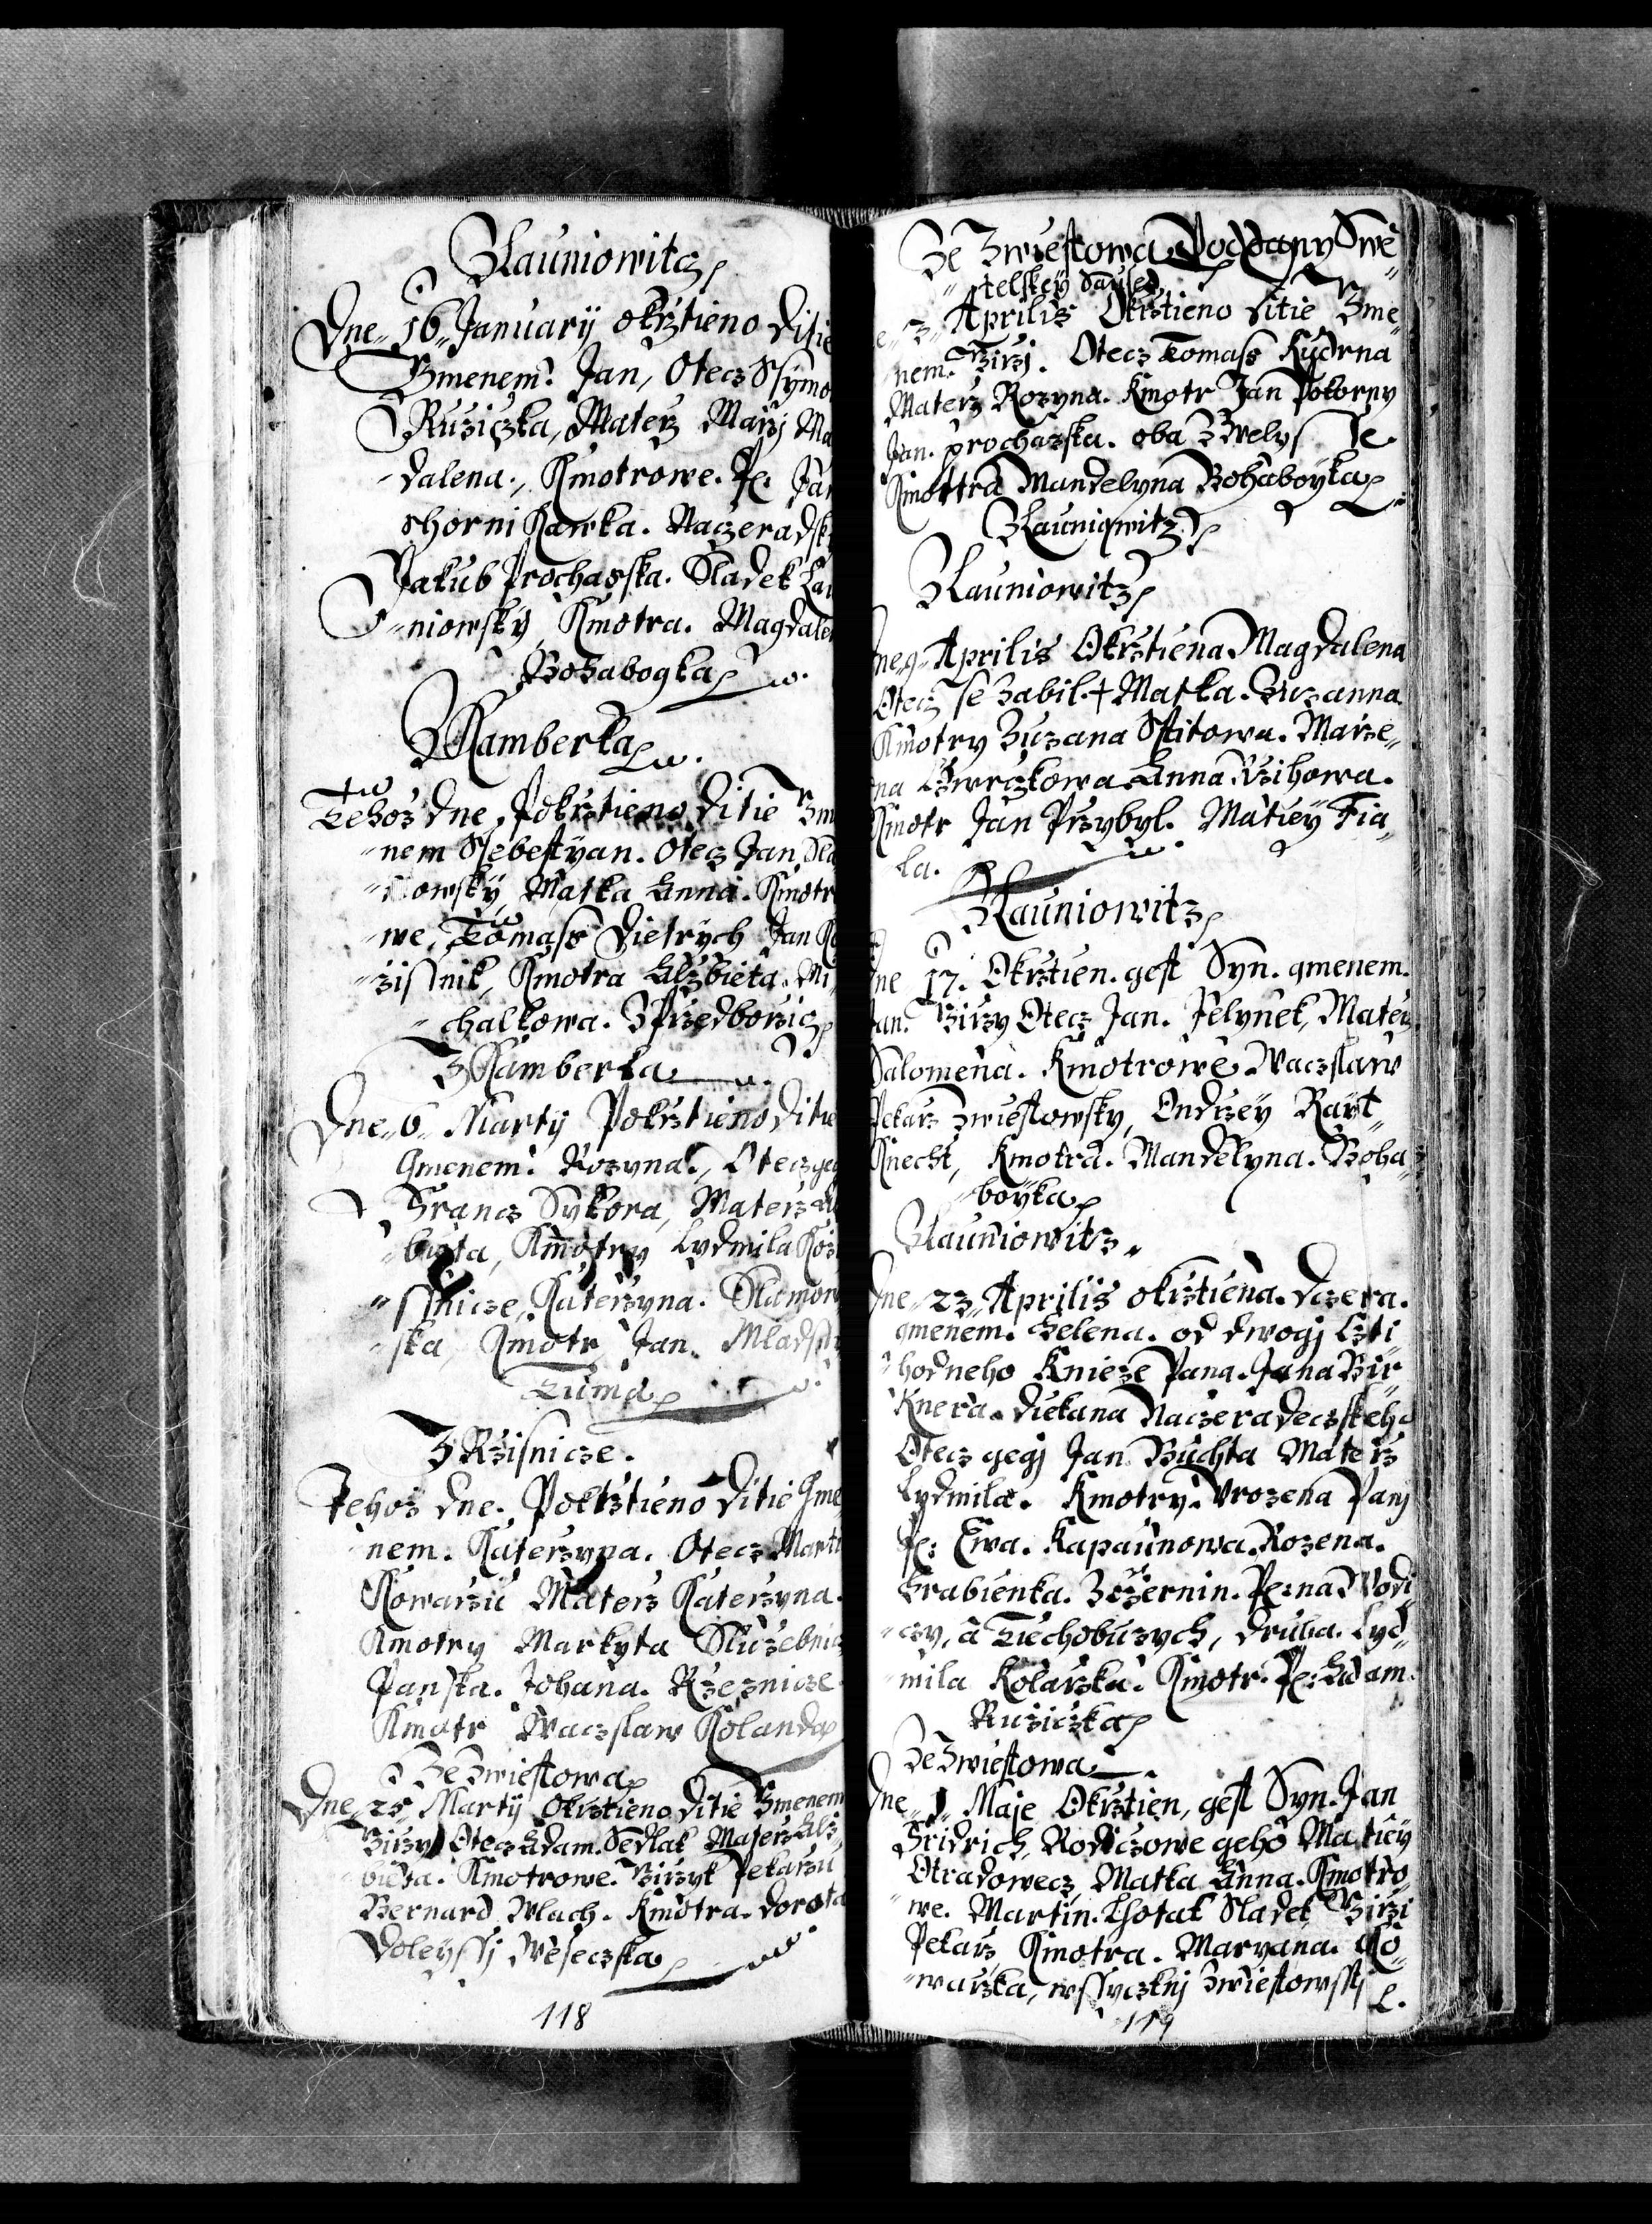 Zlauniowitz
Dne 16 January okrztieno Ditie
Gmenem. Jan, Otecz Ssymo
Ruziczka, Materz Marzj Ma
dalena., Kmotrowe. Pe: Jan
horni Kawka. Naczeradsk
Jakub Prochaska. Sladek Lau
niowsky, Kmotra. Magdalen
Bohabogka
Z Kamberka
Tehoz Dne, Pokrztieno Ditie Gme
nem Ssebestyan. Otecz Jan
owsky, Matka Anna. Kmotro
we, Tomass Dietrych Jan
zissnik, Kmotra Alzbieta. Mi
chalkowa. Z Przedborzicz
Z Kamberka
Dne 6 Marty Pokrztieno Ditie
Gmenem. Rozyna., Otecz geg
Francz Sykora, Materz Al
bieta, Kmotry Lydmila
ssnicze, Katerzyna. Slamow
ska Kmotr Jan. Mladss
Tuma
Z Rzisnicze.
Tehoz Dne. Pokrztieno Ditie Gme
nem. Katerzyna. Otecz Marti
Kowarzu Materz Katerzyna.
Kmotry Markyta Sluzebnicz
Panska. Johana. Rzeznicze
Kmotr Waczslaw Kolanda
Ze Zwiestowa
Dne 25 Marty Okrztieno Ditie Gmenem
Girzy Otecz Adam. Sedlak Materz Alz
bieta. Kmotrowe. Girzyk Pekarzu
Bernard Wlach. Kmotra. Dorota
Doleyssj Weseczska
118
Ze Zwiestowa Poddany Swe
telskey
3 Aprilis Okrztieno Ditie Gme
nem. Girzj. Otecz Tomass Kudrna
Materz Rozyna. Kmotr Jan Pokorny
Jan. Prochazka. oba Z Welys
Kmottra Mandelyna Bohaboyka
Zlauniowitz
Zlauniowitz
Dne 9 Aprilis Okrztiena Magdalena
Otecz se Zabil. + Matka. Zuzanna.
Kmotry Zuzana Sstitowa. Marze
na Czwrczkowa Anna Rzihowa.
Kmotr Jan Przybyl. Matiey Fia
la.
Zlauniowitz
Dne 17. Okrztien. gest Syn. gmenem.
Jan. Girzy Otecz Jan. Pelynek, Materz
Salomena. Kmotrowe. Waczslaw
Pekarz Zwiestowsky, Ondrzey Rayt
Knecht, Kmotra. Mandelyna. Boha
boyka
Zlauniowitz
Dne 23 Aprilis okrztiena. Dczera.
gmenem. Helena. od dwogj Czti
hodneho Knieze Pana. Jana Bir
Knera. Diekana Naczeradeczskeho
Otecz gegj Jan Buchta Materz
Lydmila. Kmotry. Vrozena Panj
Pe: Ewa. Kapaunowa. Rozena.
Hrabienka. Z Czernin. Pe: na Wodi
czy, a Tiechobuzych, druha. Lyd
mila Kolarzka. Kmotr. Pe: Adam.
Ruziczka
Ze Zwiestowa
Dne 1 Maje Okrztien, gest Syn. Jan
Fridrich, Rodiczowe geho Matiey
Otradowecz Matka Anna. Kmotro
we. Martin. Lhotak Sladek Girzi
Pekarz Kmotra. Maryana. Ko
warzka, wssyczknj Zwiestowsstj
119